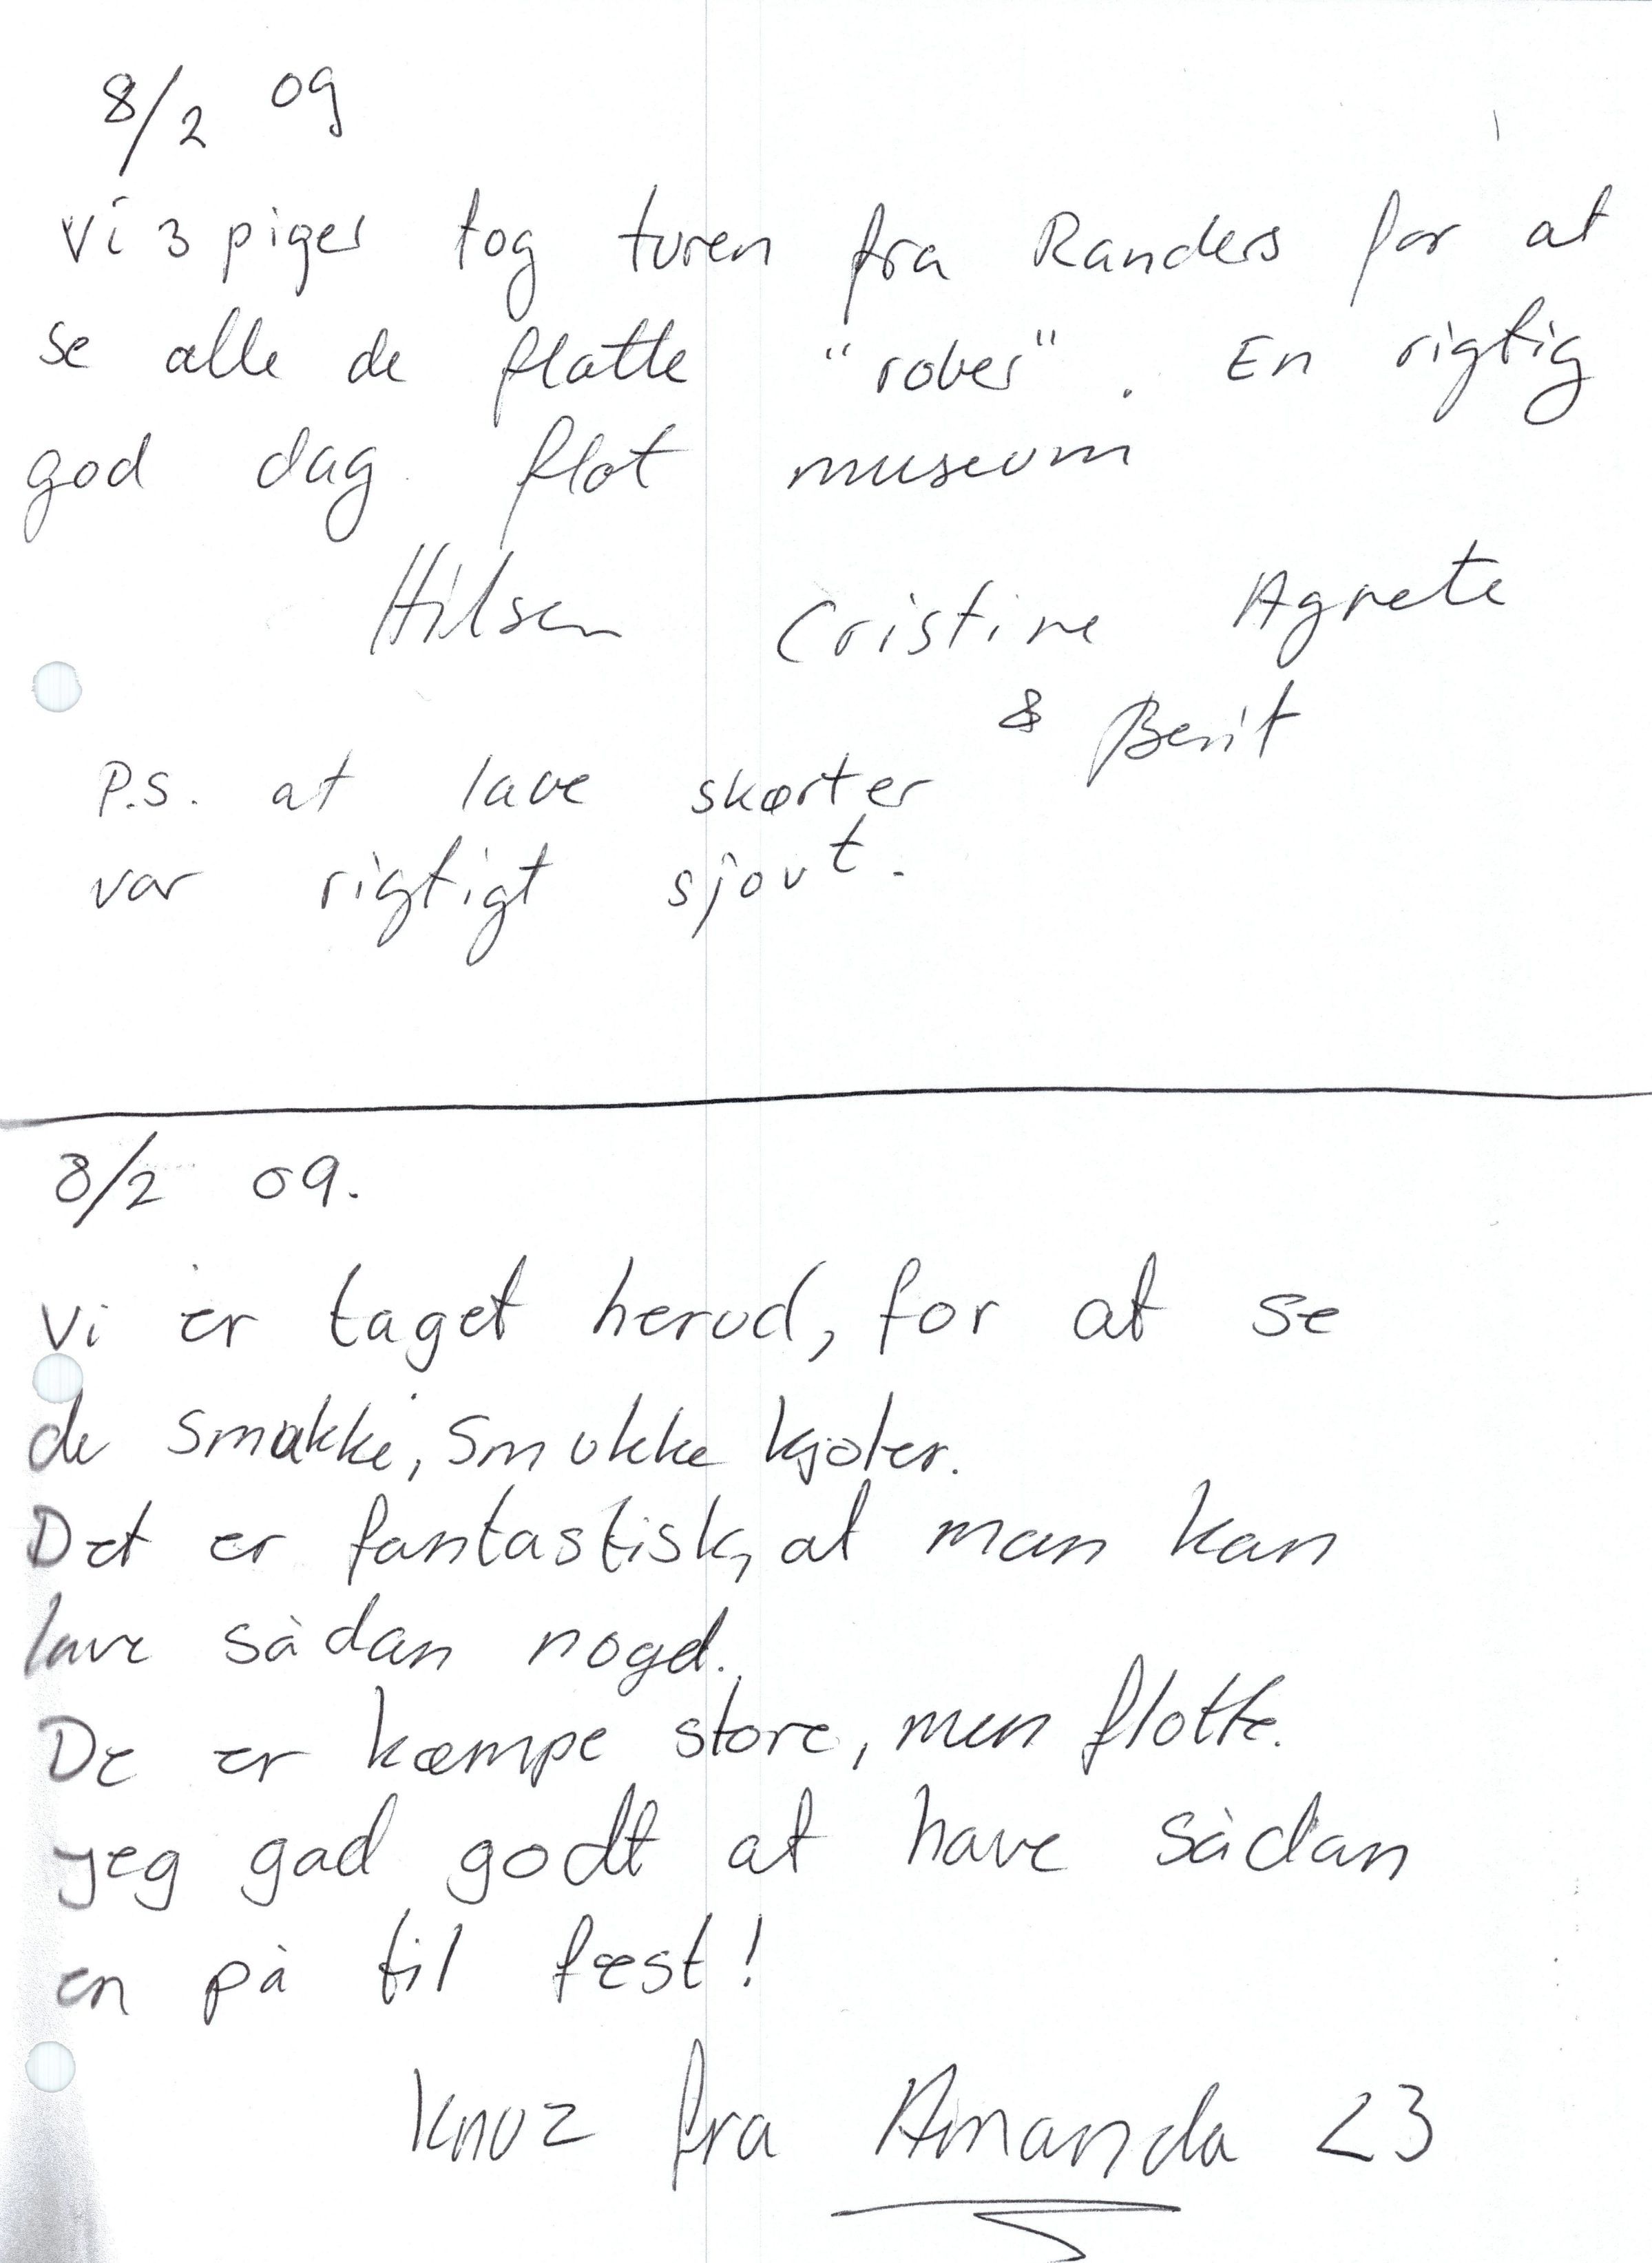 8/2 09
Vi 3 piger tog turen fra Randers for at
se alle de flotte "rober". En rigtig
god dag. flot museum
Hilsen Cristine Agnete
& Berit
P.S. at lave skørter
var rigtigt sjovt.
8/2 09.
Vi er taget herud, for at se
de smukke, smukke kjoler.
Det er fantastisk, at man kan
lave sådan noget.
De er kæmpe store, men flotte.
jeg gad godt at have sådan
en på til fæst!
Knuz fra Amanda <3